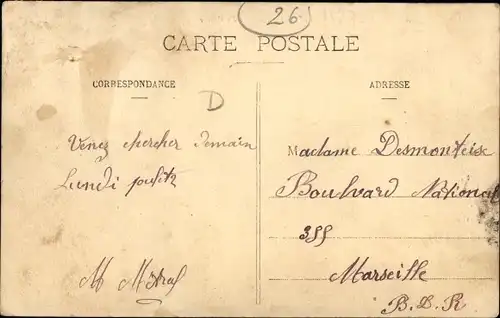 26
CARTE POSTALE
CORRESPONDANCE
D
Venez chercher demain
Lundi
M
ADRESSE
Madame Desmonteise
Boulvard National
355
Marseille
B.D.R